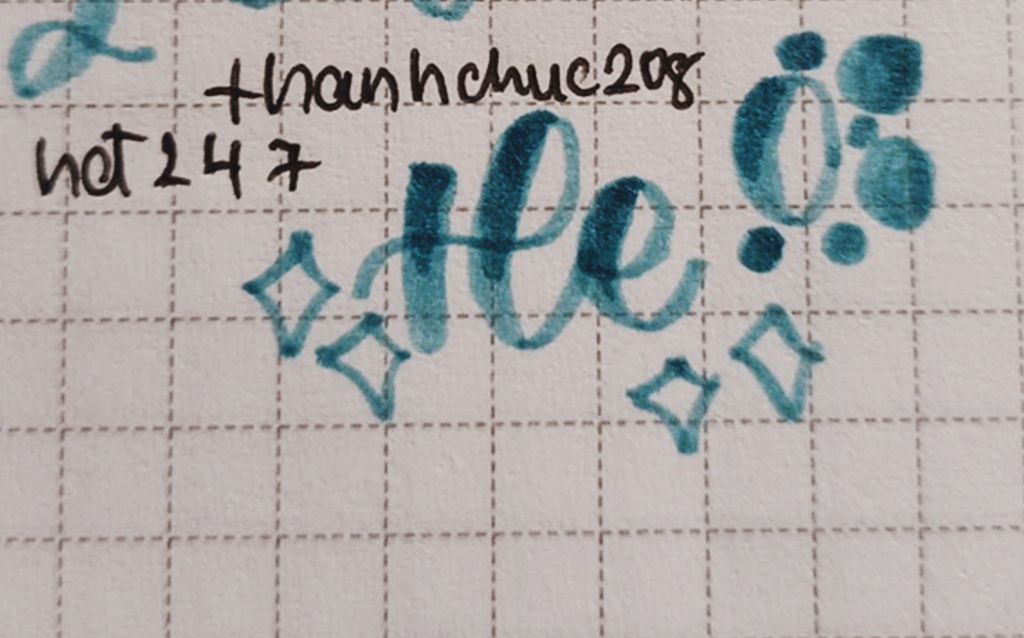 thanhchuc208
hot247
He